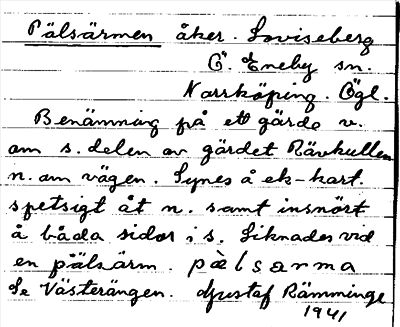 Pälsärmen åker. Loviseberg
Ö. Eneby sn.
Norrköping. Ögl.
Benämning på ett gärde v.
om s. delen av gärdet Rävkullen
n. om vägen. Synes å ek-kart.
spetsigt åt n. samt insnört
å båda sidor i s. Liknades vid
en pälsärm. pälsarma
Se Västerängen. Gustaf Rämminge
1941